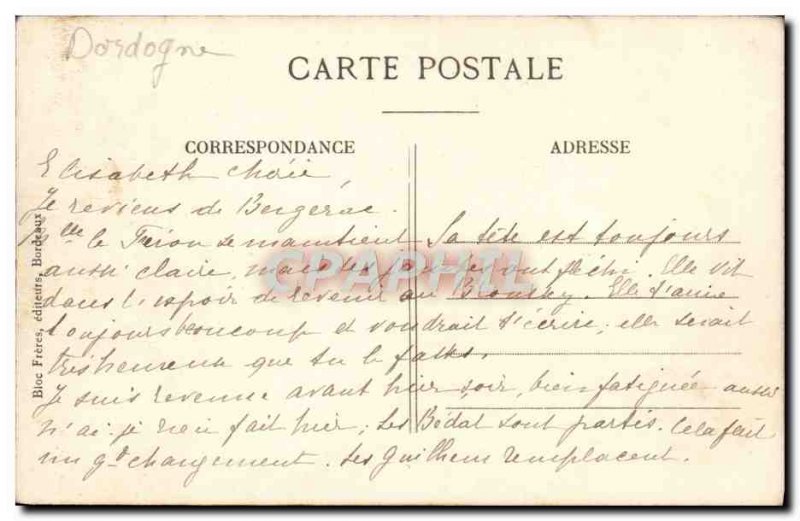 Dordogne
CARTE POSTALE
CORRESPONDANCE
ADRESSE
Elisabeth chérie,
Je reviens de Bergerac.
Melle le se maintient. Sa tête est toujours
aussi claire, mais ses jambes ont fléchi. Elle vit
dans l'espoir de revenir au. Elle t'aime
toujours beaucoup et voudrait t'écrire; elle serait
très heureuse que tu le fasses.
Je suis revenue avant hier soir, bien fatiguée aussi
n'ai-je rien fait hier; Les Bédat sont partis. Cela fait
un gd changement. Les Guilhem remplacent.
Bloc Frères, éditeurs, Bordeaux
CPAPHIL